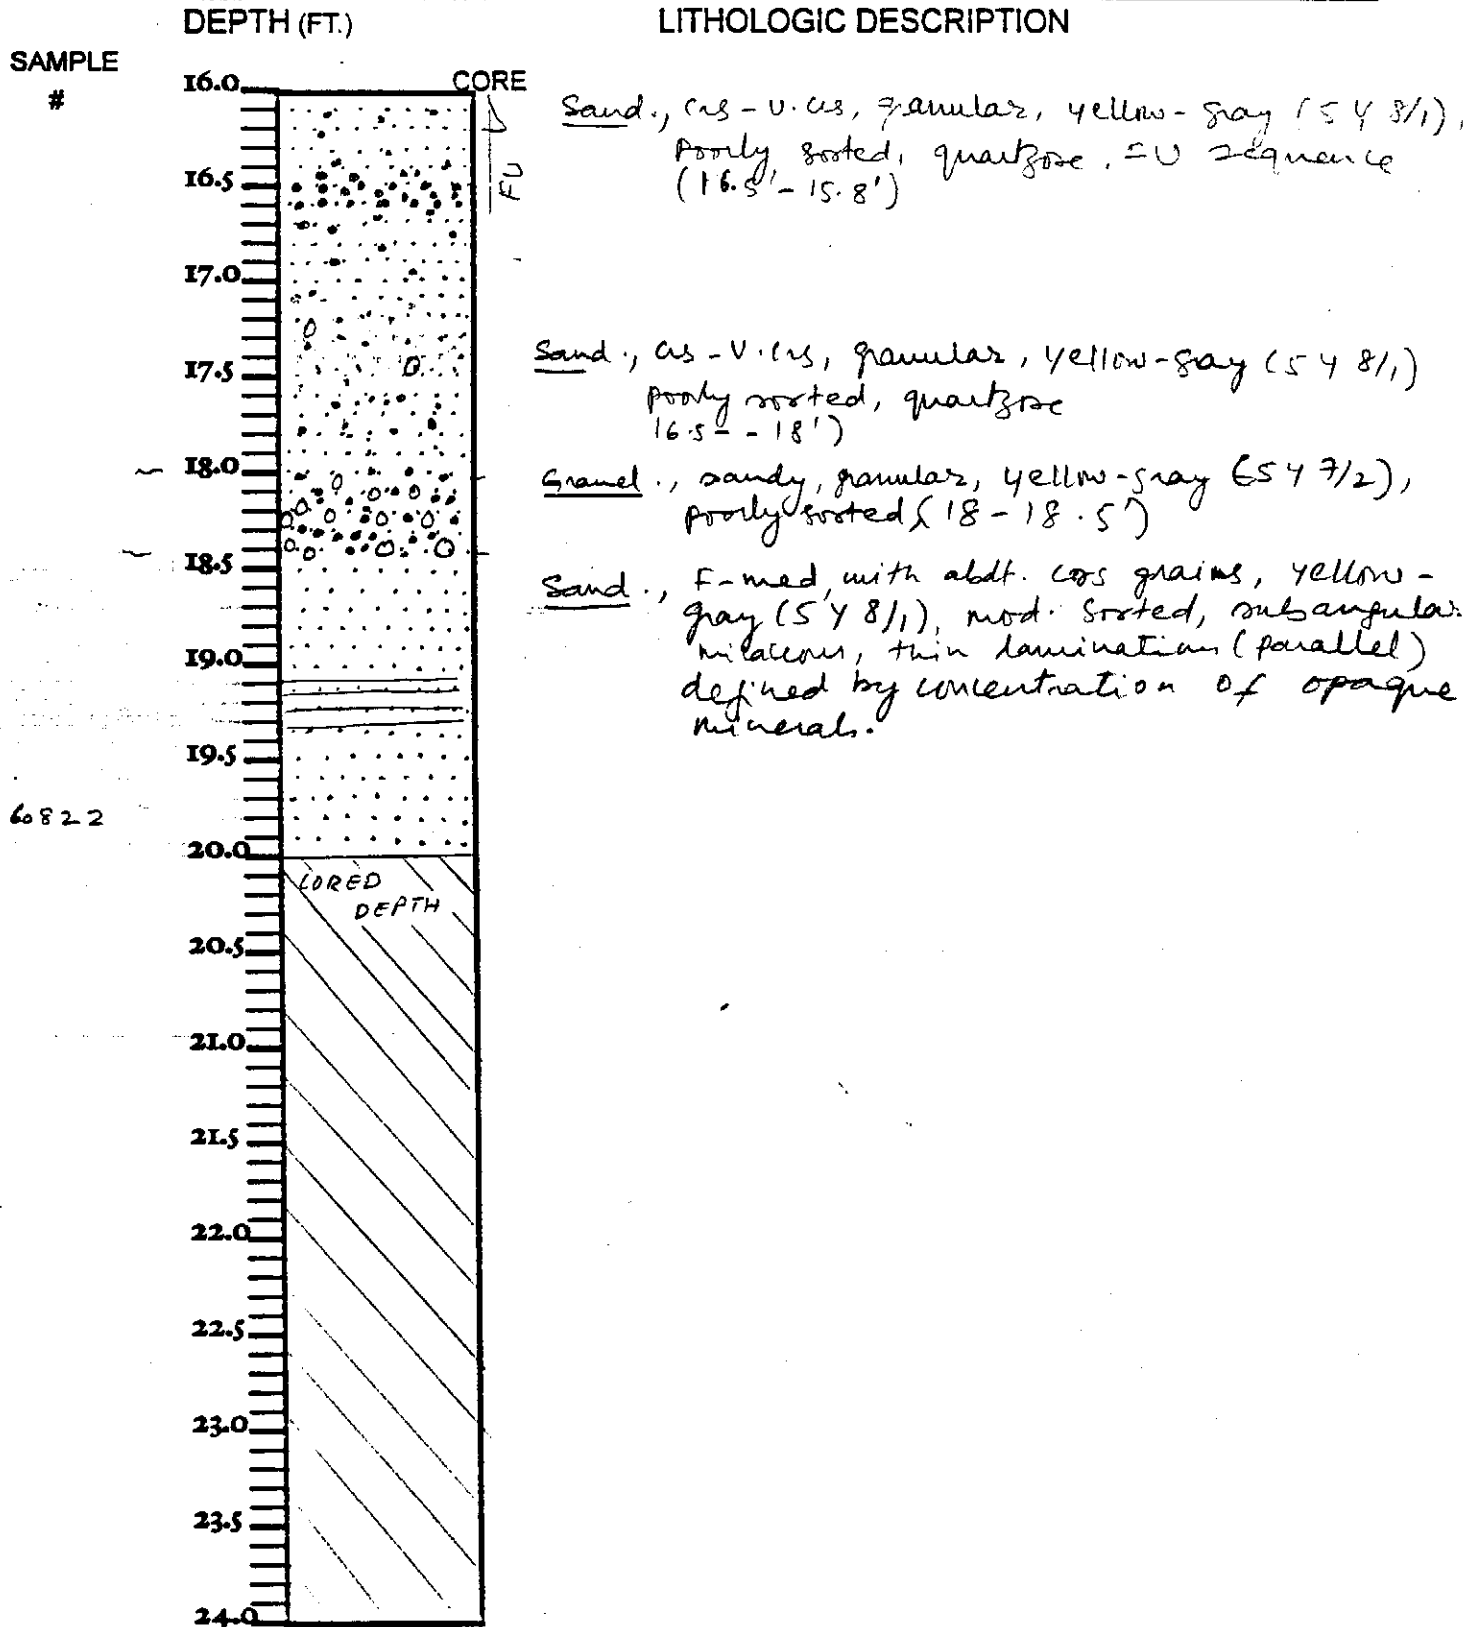 DEPTH (FT.)
LITHOLOGIC DESCRIPTION
SAMPLE
#
CORE
16.0
16.5
17.0
17.5
18.0
18.5
19.0
19.5
20.0
20.5
21.0
21.5
22.0
22.5
23.0
23.5
24.0
FU
Sand., crs - v. crs, granular, yellow-gray (5 Y 8/1),
poorly sorted, quartzose, FU sequence
(16.5' - 15.8')
Sand., crs - v. crs, granular, yellow-gray (5 Y 8/1)
poorly sorted, quartzose
16.5 - - 18')
Gravel., sandy, granular, yellow-gray (5 Y 7/2),
poorly sorted (18 - 18.5')
Sand., F-med, with abdt. crs grains, yellow-
gray (5 Y 8/1), mod. sorted, subangular
micaceous, thin laminations (parallel)
defined by concentration of opaque
minerals.
60822
CORED
DEPTH